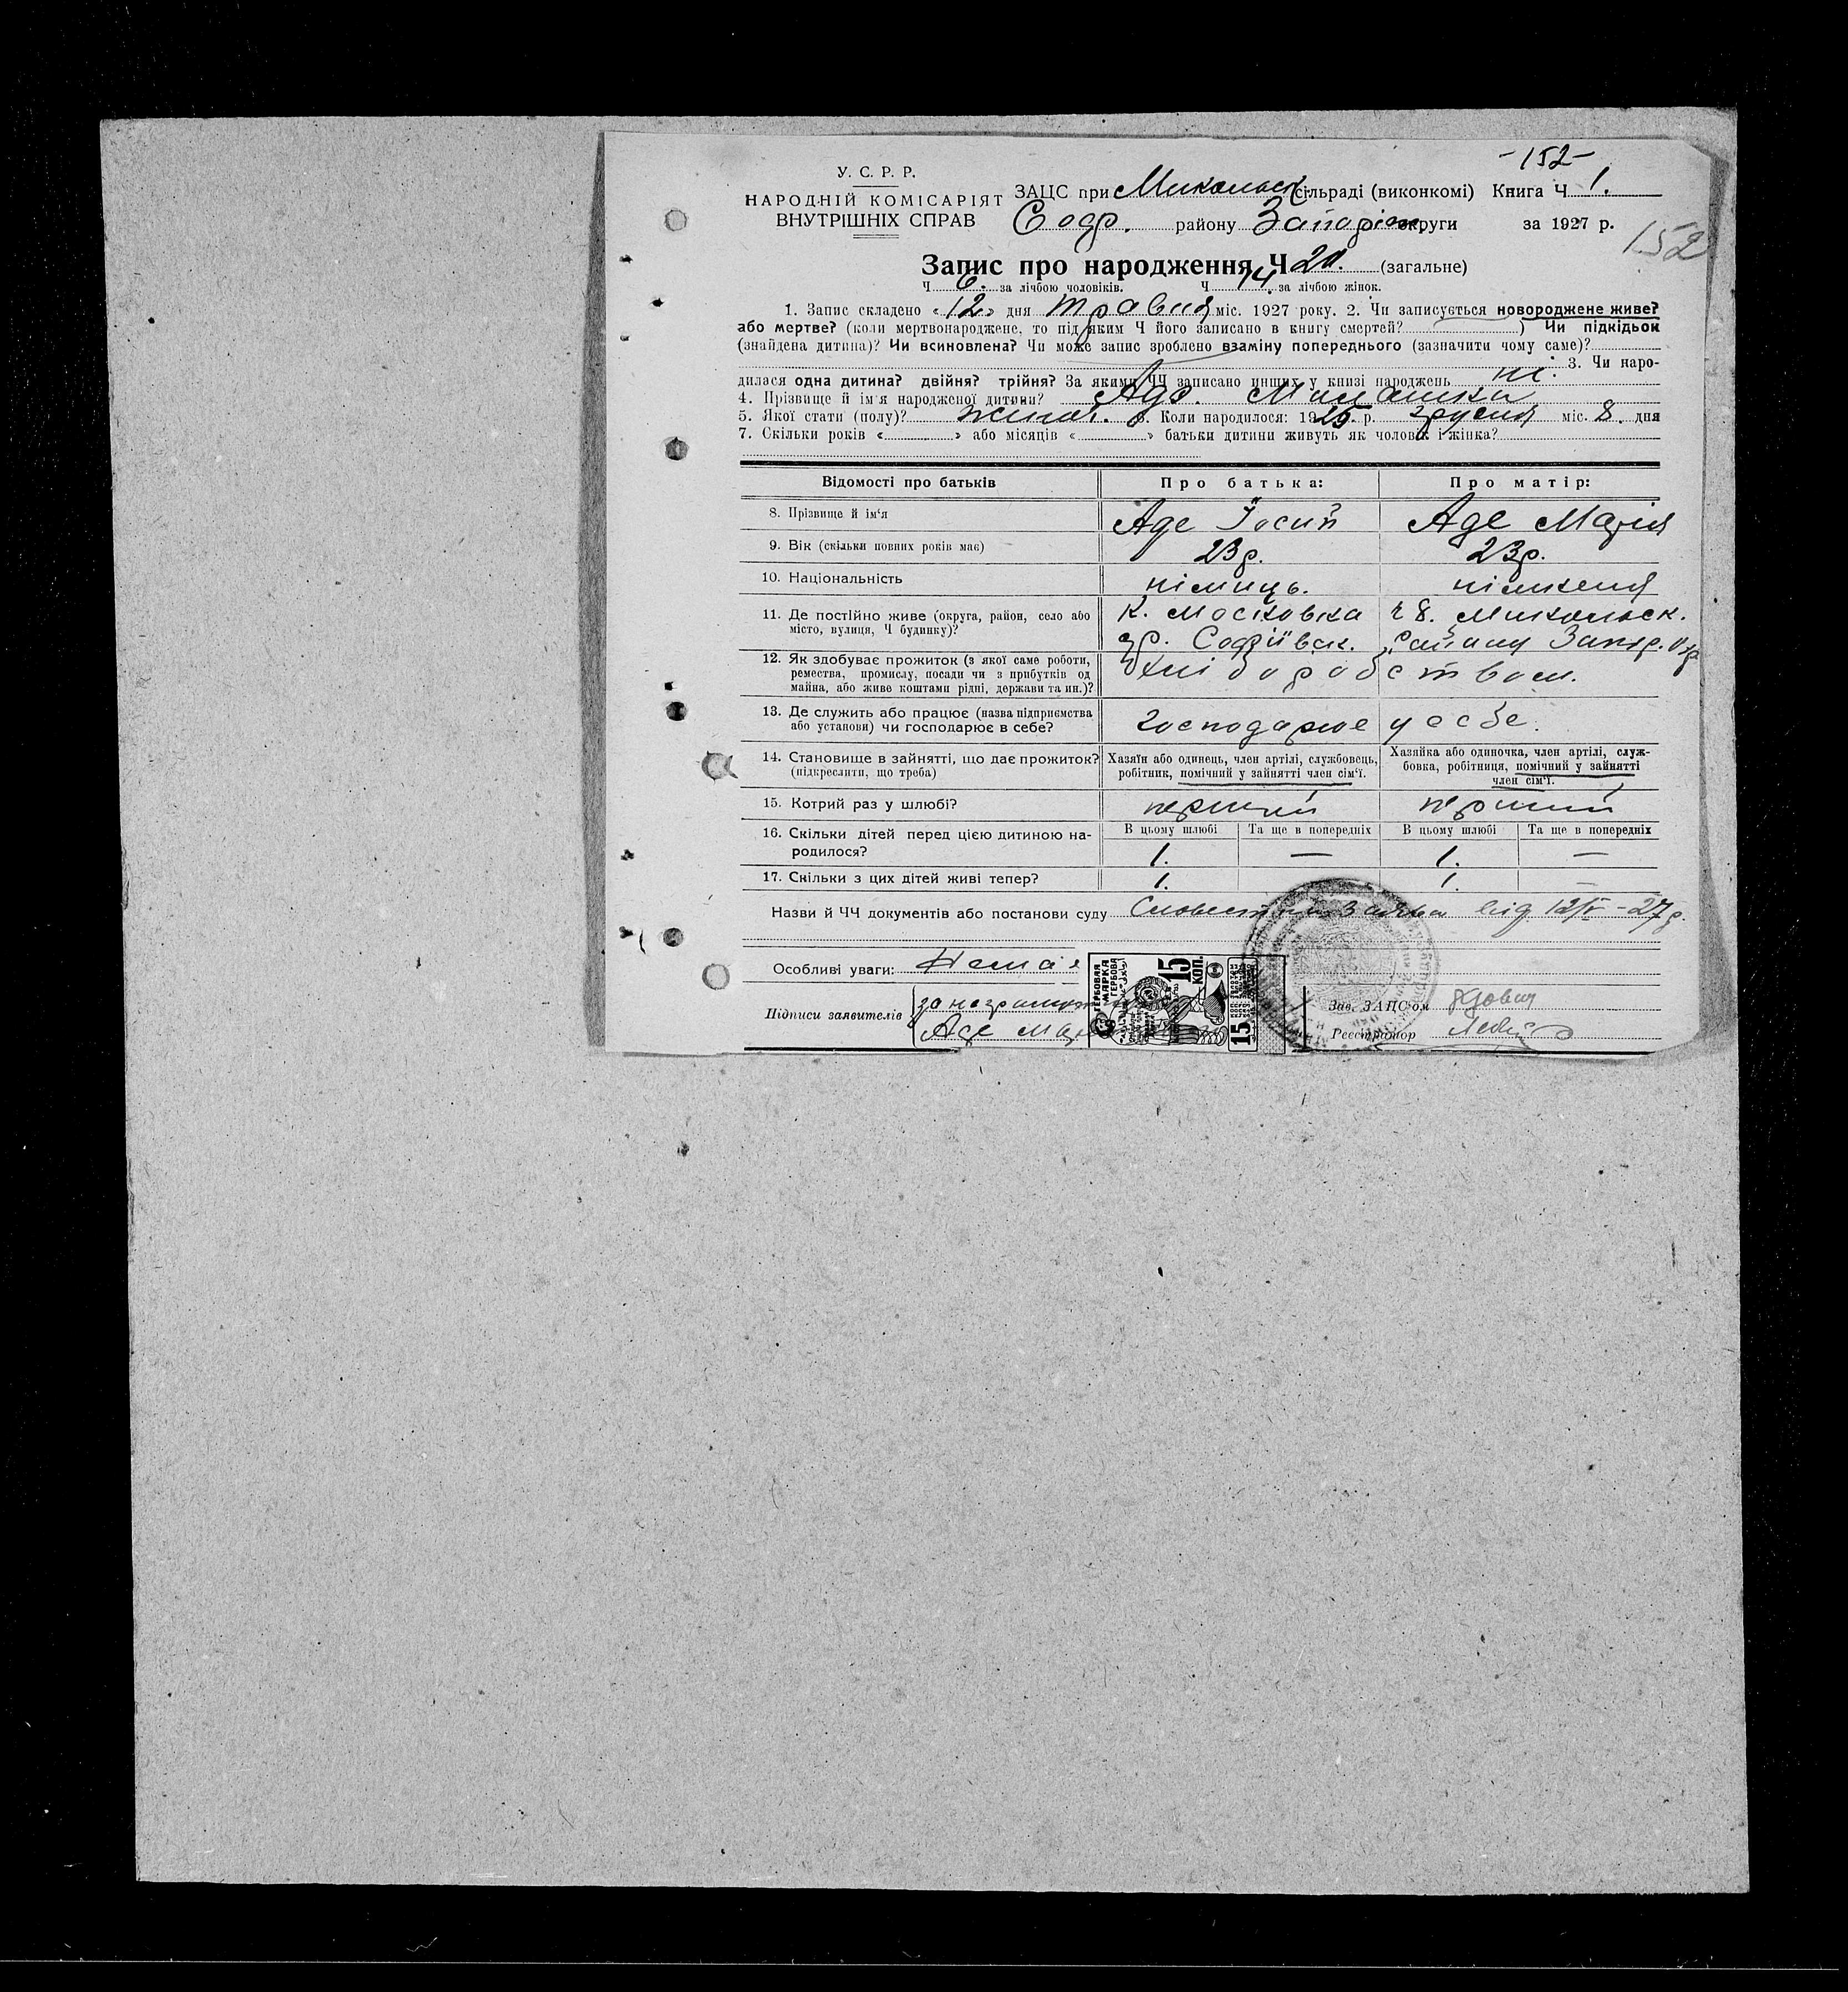 -152-
У. С. Р. Р.
НАРОДНІЙ КОМІСАРІЯТ
ВНУТРІШНІХ СПРАВ
ЗАЦС при Микольск. сільраді (виконкомі) Книга Ч 1.
Соф. району Запоріж. округи за 1927 р.
152
Запис про народження Ч 20. (загальне)
Ч 6. за лічбою чоловіків. Ч 14. за лічбою жінок.
1. Запис складено «12» дня травня міс. 1927 року. 2. Чи записується новороджене живе?
або мертве? (коли мертвонароджене, то під яким Ч його записано в книгу смертей? ) Чи підкідьок
(знайдена дитина)? Чи всиновлена? Чи може запис зроблено взаміну попереднього (зазначити чому саме)?
3. Чи наро-
дилася одна дитина? двійня? трійня? За якими ЧЧ записано инших у книзі народжень ні.
4. Прізвище й ім'я народженої дитини? Аде.
5. Якої стати (полу)? жіноч. 6. Коли народилося: 1925 р. грудня міс. 8. дня
7. Скільки років « » або місяців « » батьки дитини живуть як чоловік і жінка?
Відомості про батьків Про батька: Про матір:
8. Прізвище й ім'я Аде Йосип Аде Марія
9. Вік (скільки повних років має) 23 р. 23 р.
10. Національність німиць. німкеня
11. Де постійно живе (округа, район, село або
місто, вулиця, Ч будинку)?
к. Московка ч 8. Микольск.
Софіївск. району Запор. окр
12. Як здобуває прожиток (з якої саме роботи,
ремества, промислу, посади чи з прибутків од
майна, або живе коштами рідні, держави та ин.)?
хліборобством.
13. Де служить або працює (назва підприємства
або установи) чи господарює в себе?
господарює у себе.
14. Становище в зайнятті, що дає прожиток?
(підкреслити, що треба)
Хазяїн або одинець, член артілі, службовець,
робітник, помічний у зайнятті член сім'ї.
Хазяйка або одиночка, член артілі, служ-
бовка, робітниця, помічний у зайнятті
член сім'ї.
15. Котрий раз у шлюбі? перший перший
16. Скільки дітей перед цією дитиною на-
родилося?
В цьому шлюбі Та ще в попередніх В цьому шлюбі Та ще в попередніх
1. — 1. —
17. Скільки з цих дітей живі тепер? 1. 1.
Назви й ЧЧ документів або постанови суду заява від 12/V-27 р.
Особливі уваги: Немає
Підписи заявителів
за неграмотн
Аде
ГЕРБОВАЯ
МАРКА
ГЕРБОВА
15
КОП.
15
Зав. ЗАЦС'ом
Реєстратор